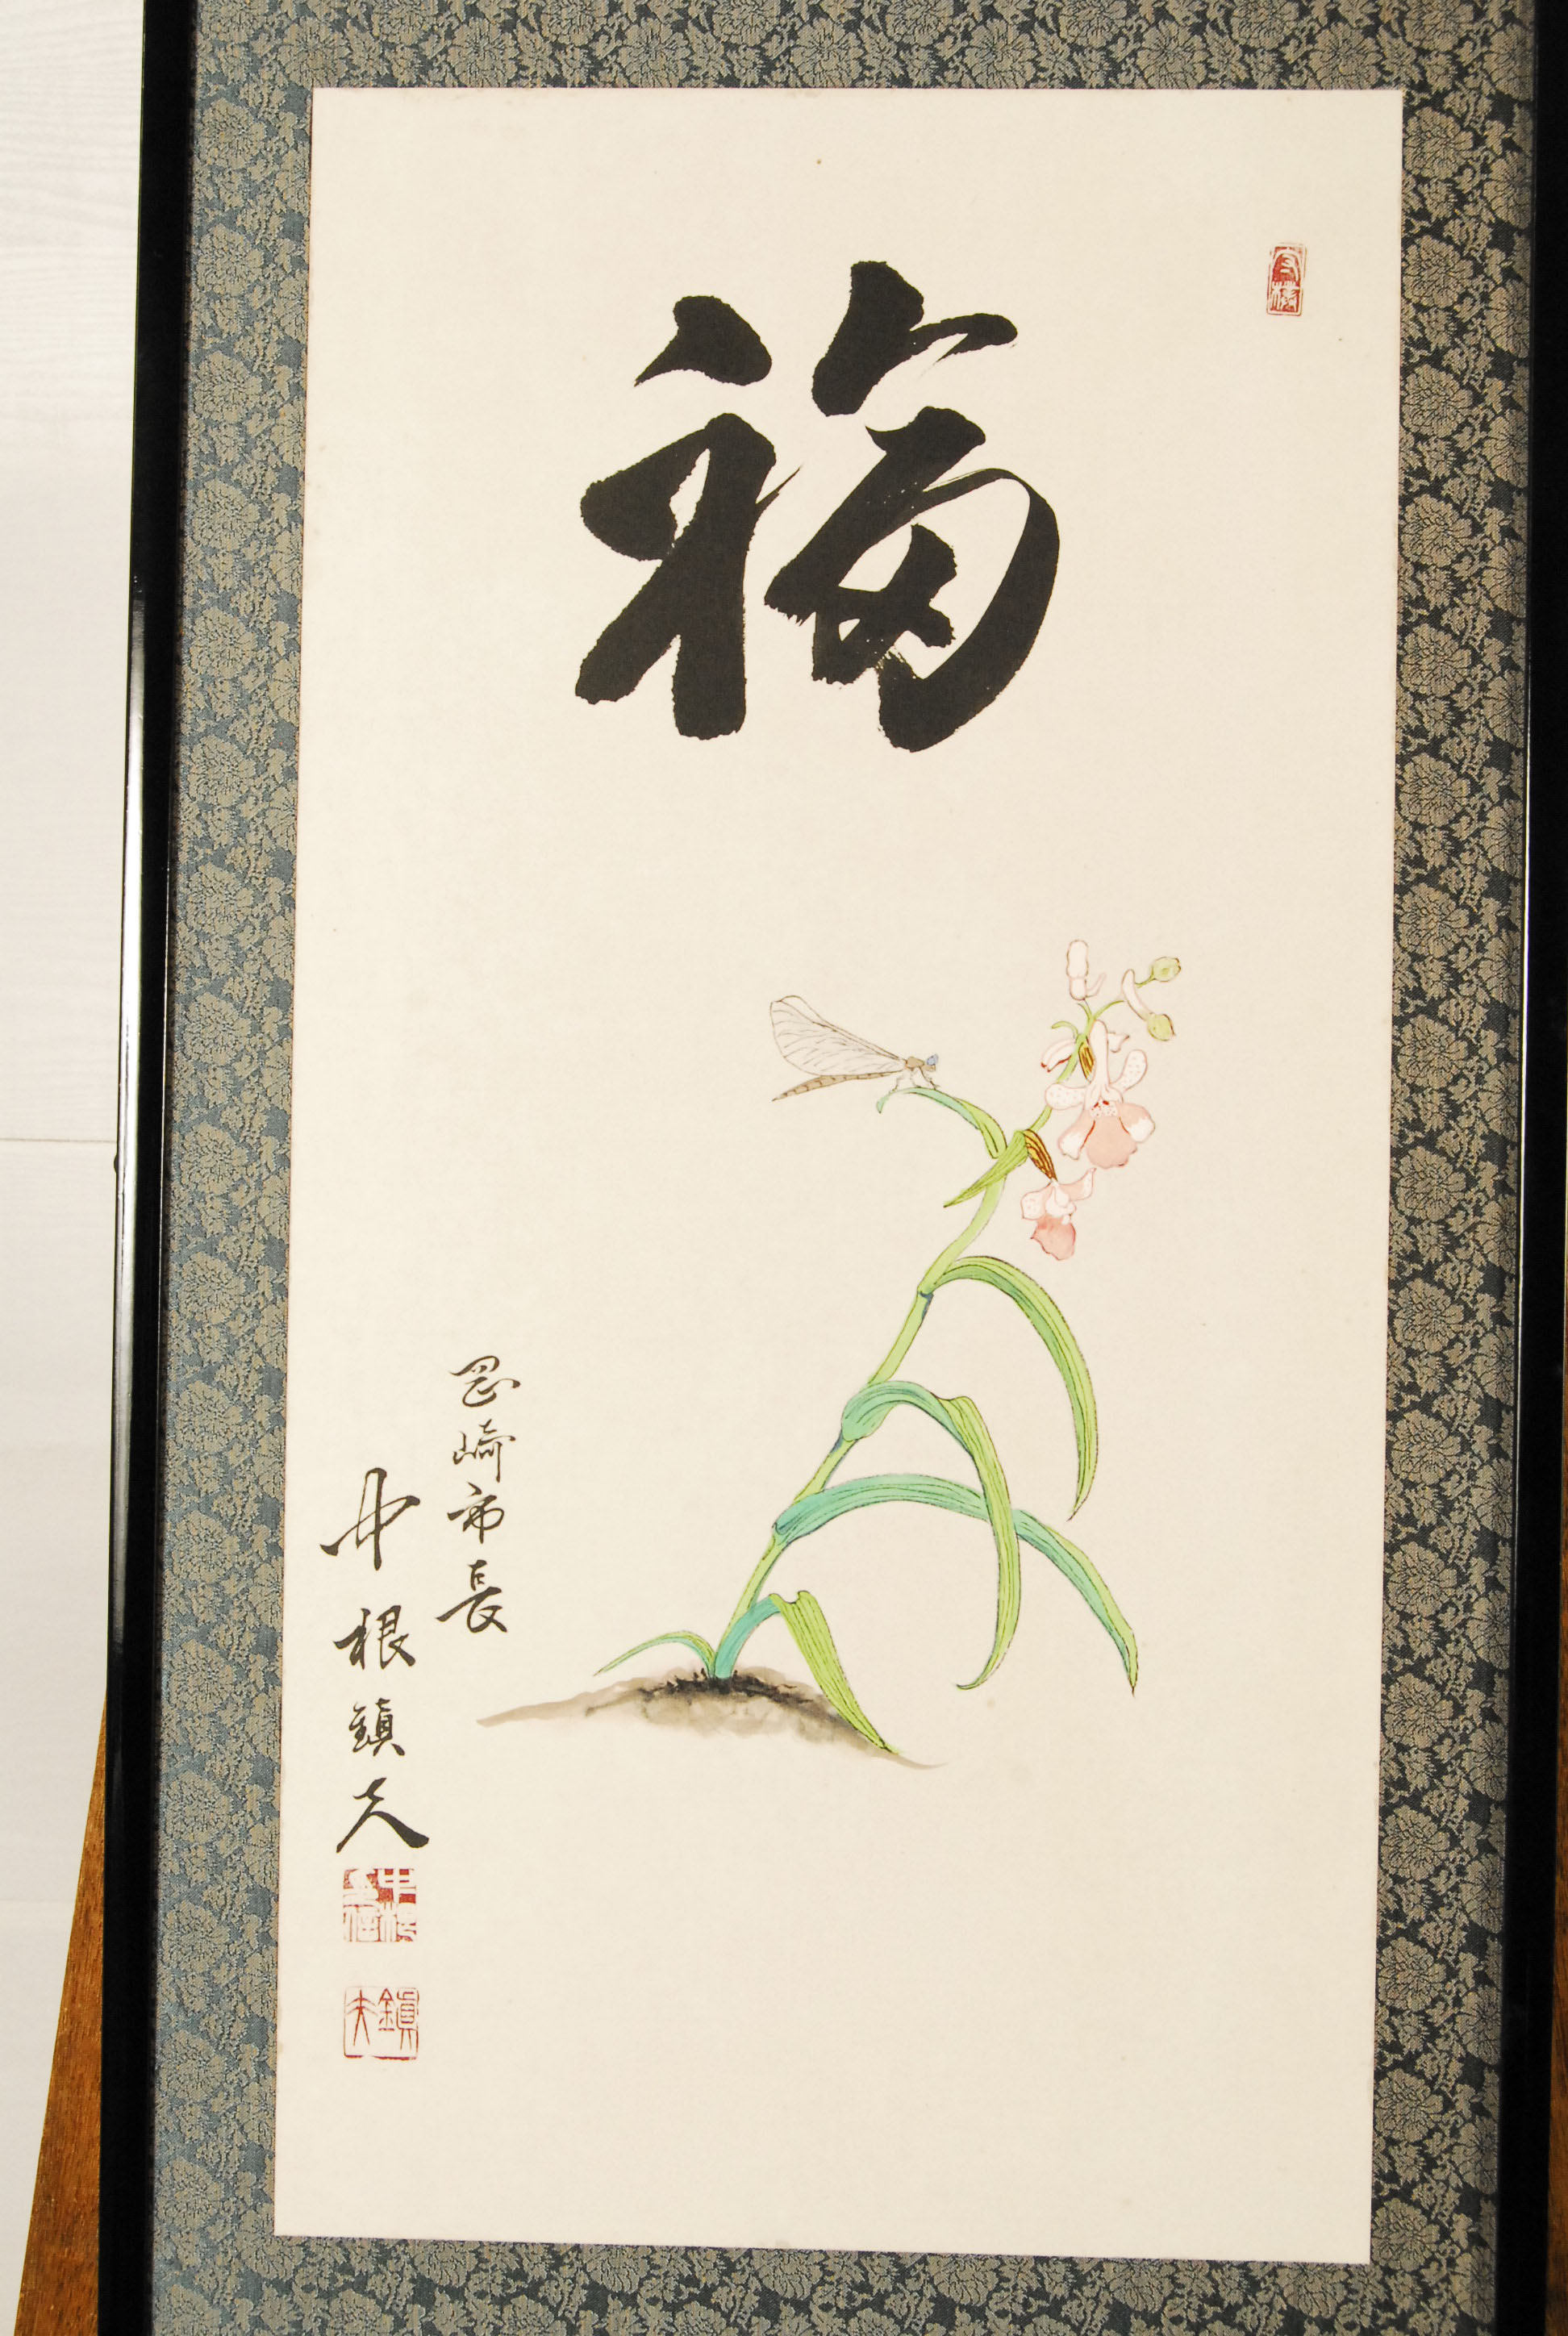 福
岡崎市長
中根鎮夫
中根
鎮夫